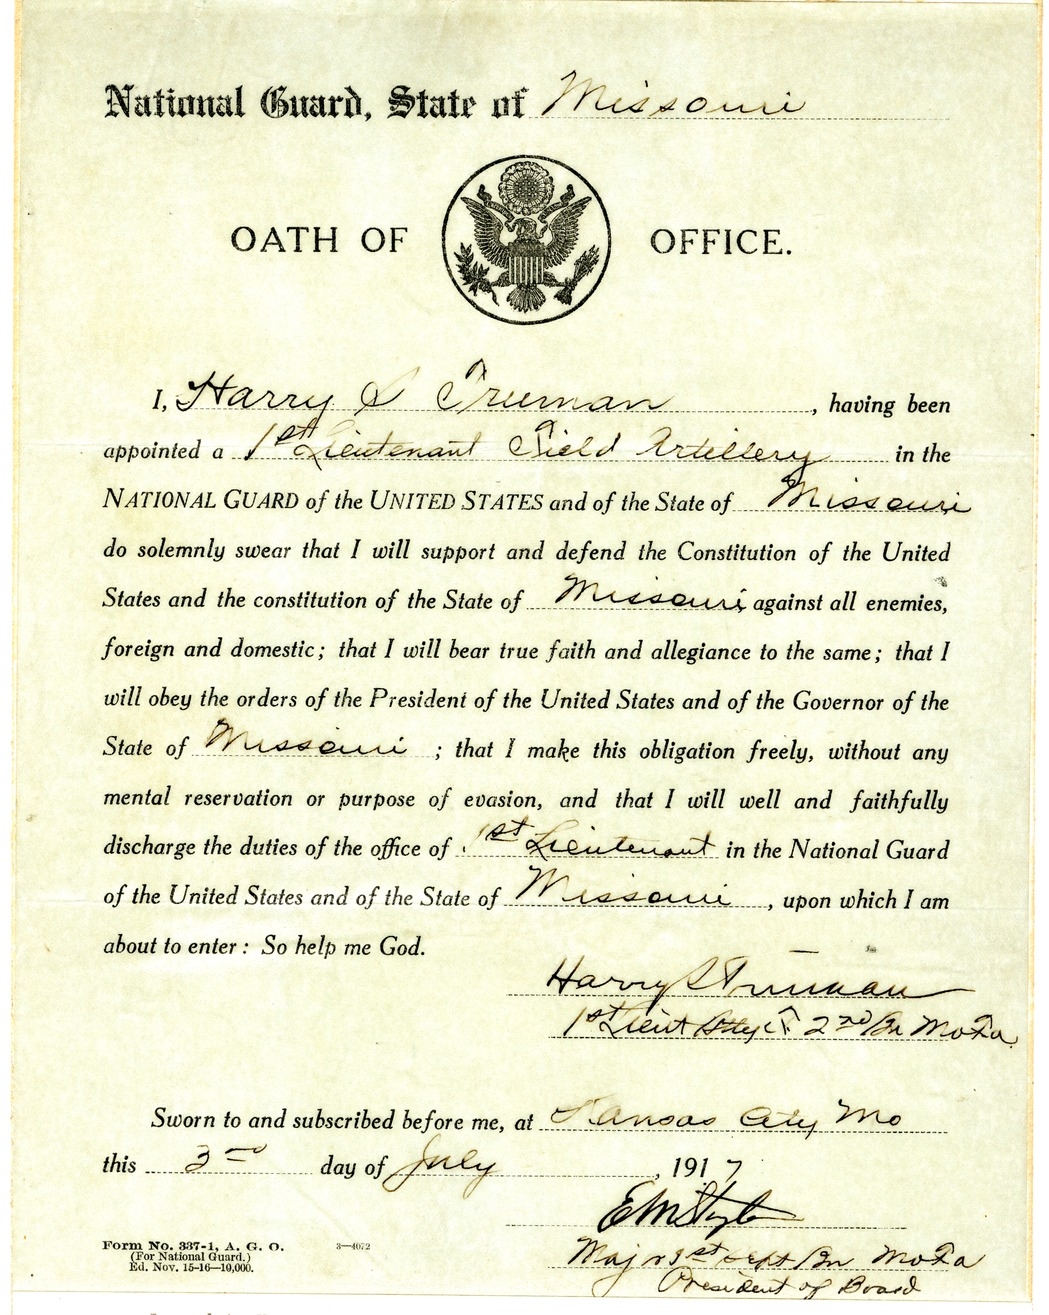 National Guard, State of Missouri
OATH OF OFFICE.
I, Harry S Truman, having been
appointed a 1st Lieutenant Field Artillery in the
NATIONAL GUARD of the UNITED STATES and of the State of Missouri
do solemnly swear that I will support and defend the Constitution of the United
States and the constitution of the State of Missouri against all enemies,
foreign and domestic; that I will bear true faith and allegiance to the same; that I
will obey the orders of the President of the United States and of the Governor of the
State of Missouri; that I make this obligation freely, without any
mental reservation or purpose of evasion, and that I will well and faithfully
discharge the duties of the office of 1st Lieutenant in the National Guard
of the United States and of the State of Missouri, upon which I am
about to enter: So help me God.
Harry S Truman
1st Lieut Bty F 2nd Bn Mo Fa
Sworn to and subscribed before me, at Kansas City Mo
this 3rd day of July, 1917
Major 1st Bn Mo Fa
President of Board
Form No. 337-1, A. G. O.
(For National Guard.)
Ed. Nov. 15-16—10,000.
3—4072